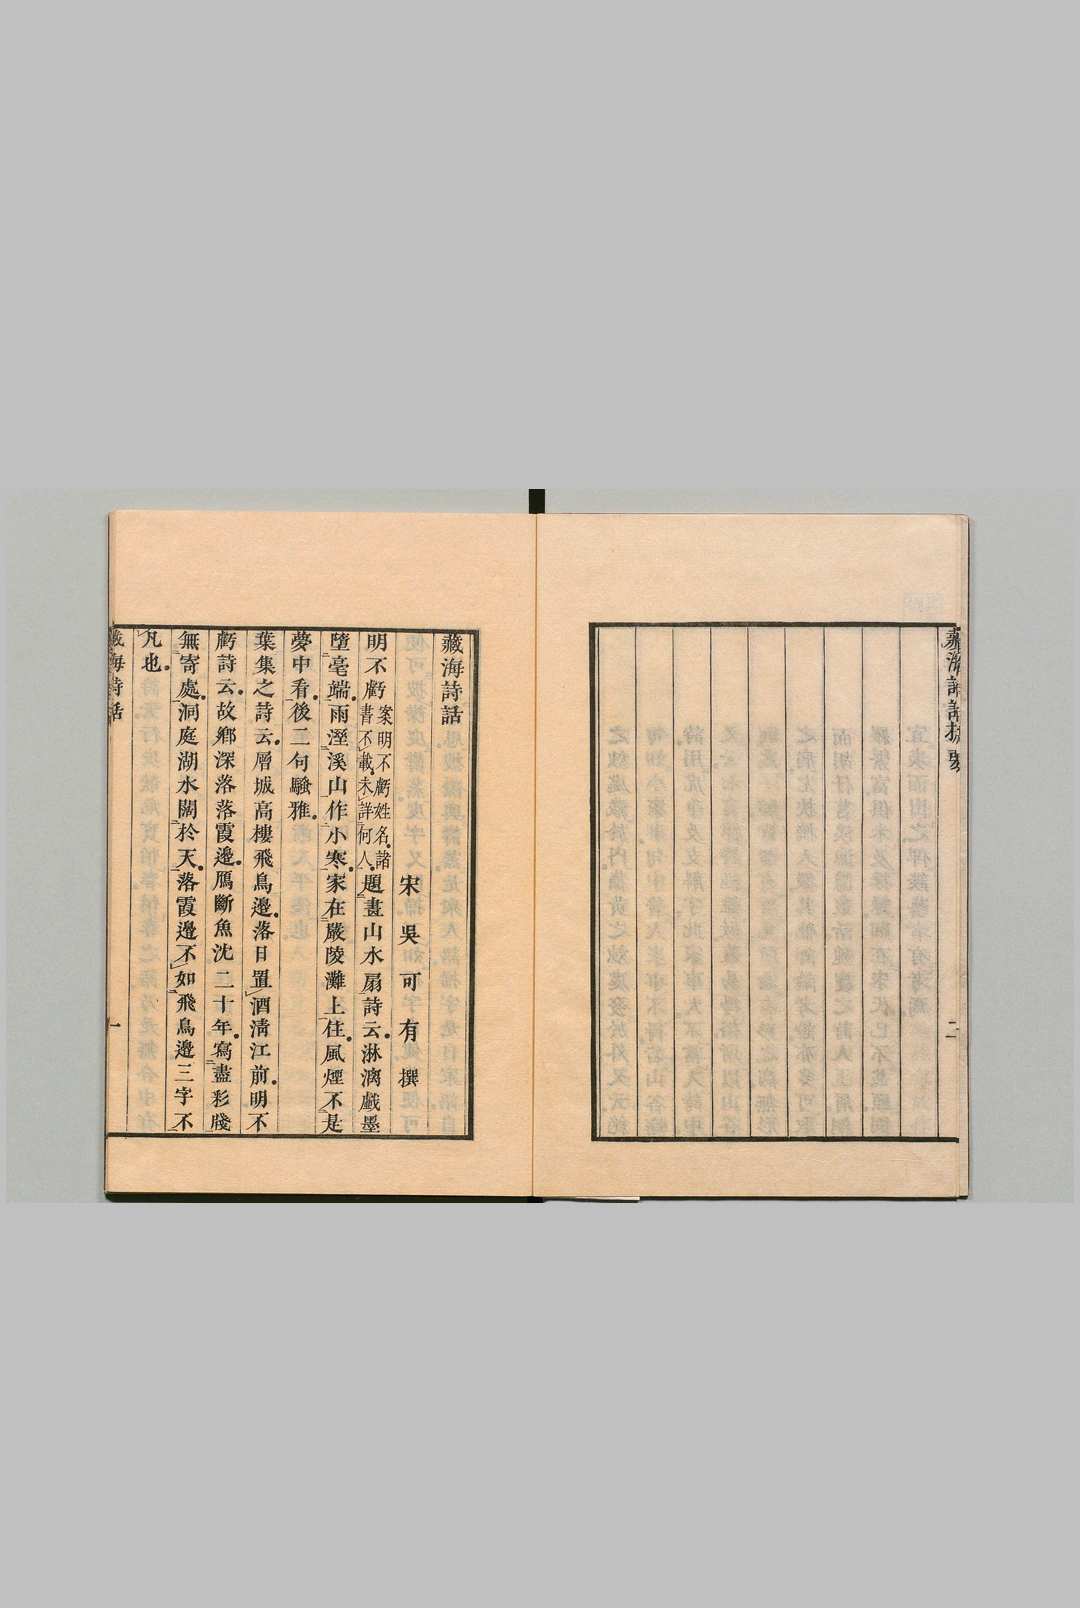 藏海詩話
二
藏海詩話
宋吳可有撰
明不虧案明不虧姓名諸書不載未詳何人題畫山水扇詩云淋漓戲墨
墮毫端雨溼溪山作小寒家在嚴陵灘上住風煙不是
夢中看後二句騷雅
葉集之詩云層城高樓飛鳥邊落日置酒淸江前明不
虧詩云故鄉深落落霞邊鴈斷魚沈二十年寫盡彩牋
無寄處洞庭湖水闊於天落霞邊不如飛鳥邊三字不
凡也
藏海詩話
一